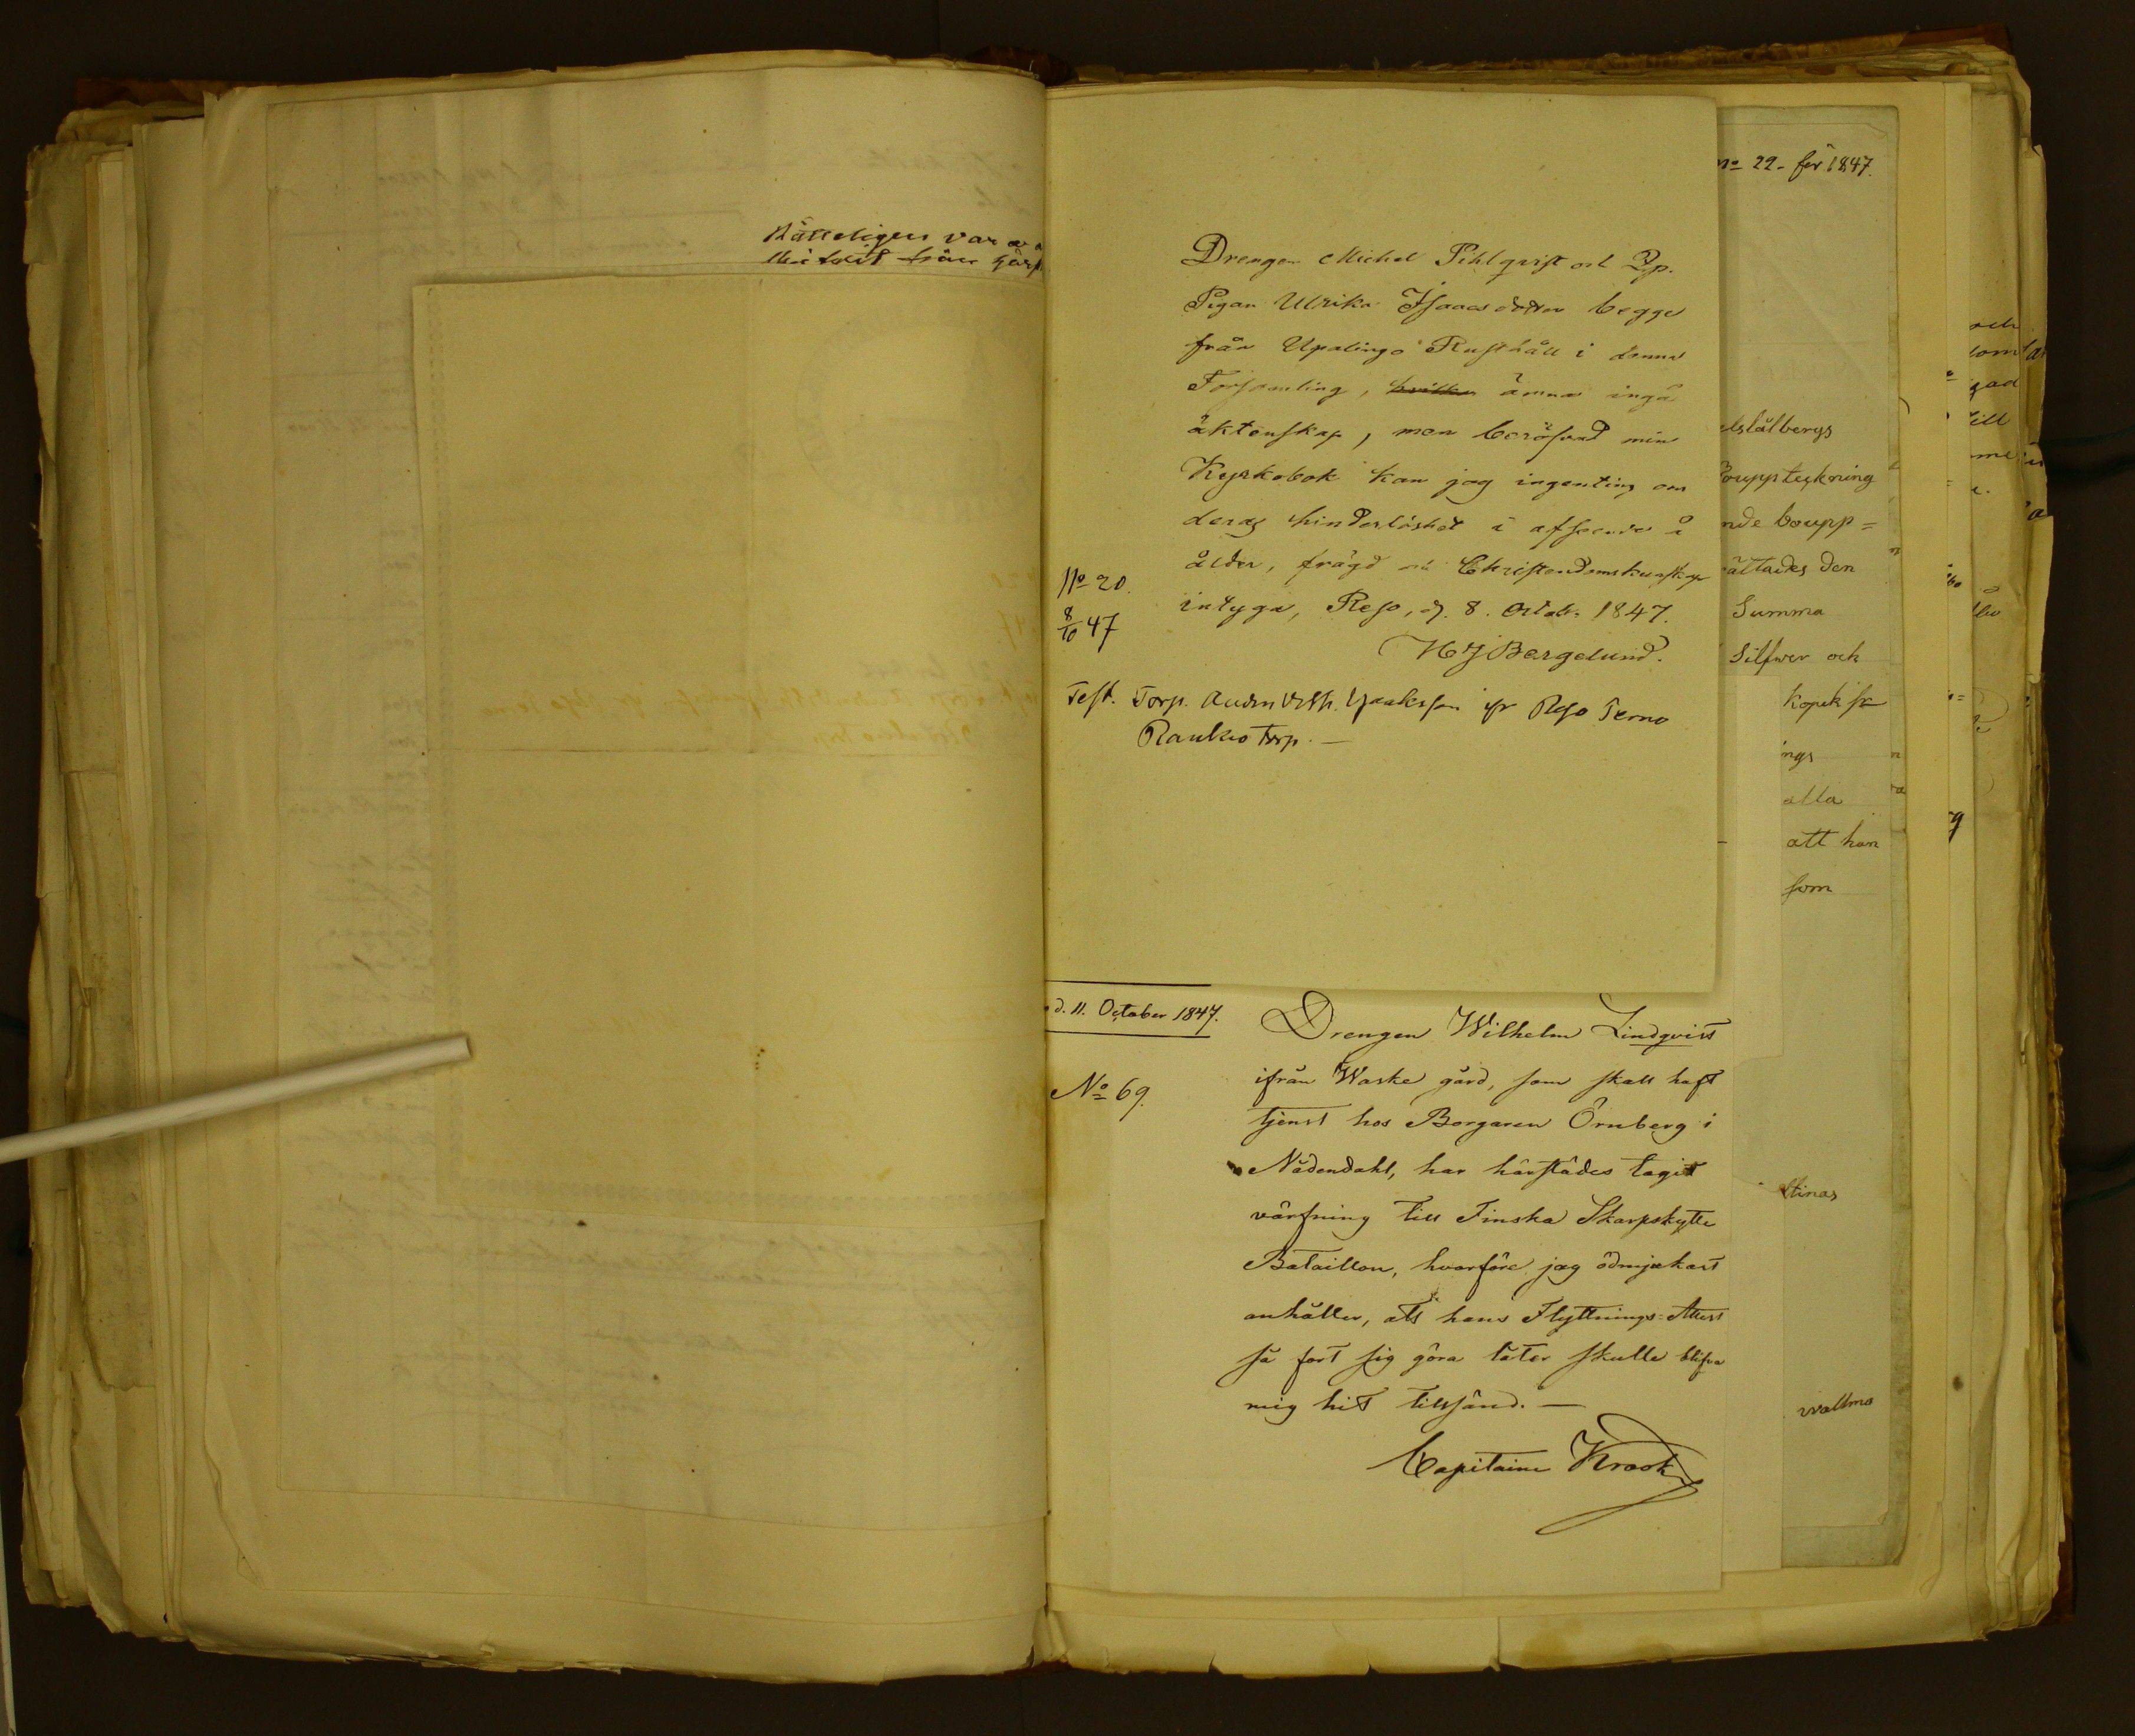 Rätteligen var
No 22. för 1847.
Drengen Michel Pihlqvist och Qp.
Pigan Ulrika Isaacsdotter begge
från Upalingo Rusthåll i denna
Församling, hvilka ämna ingå
äktenskap, men beröfvad min
Kyrkobok kan jag ingenting om
deras hinderlöshet i afseende å
ålder, frägd och Christendomskunskap
intyga, Reso, d. 8. Octob. 1847.
HJBergelund.
No 20.
8/10 47
Test. Torp. fr Reso Terno
Raukio Torp. —
elslälbergs
ouppteckning
nde boupp=
ättades den
Summa
Silfwer och
Kopek Sr
ings
alla
att han
som
ttinas
wallma
d. 11. October 1847.
No 69.
Drengen Wilhelm Lindqvist
ifrån Waske gård, som skall haft
tjenst hos Borgaren Örnberg i
Nådendahl, har härstädes tagit
värfning till Finska Skarpskytte
Bataillon, hvarföre jag ödmjukast
anhåller, att hans Flyttnings=Attest
så fort sig göra låter skulle blifva
mig hit tillsänd. —
Capitaine Krook